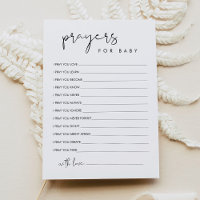 prayers
FOR BABY
I PRAY YOU LOVE
I PRAY YOU LEARN
I PRAY YOU BECOME
I PRAY YOU KNOW
I PRAY YOU NEVER
I PRAY YOU ALWAYS
I PRAY YOU IGNORE
I PRAY YOU NEVER FORGET
I PRAY YOU
I PRAY YOU
I PRAY YOU
I PRAY YOU
with love